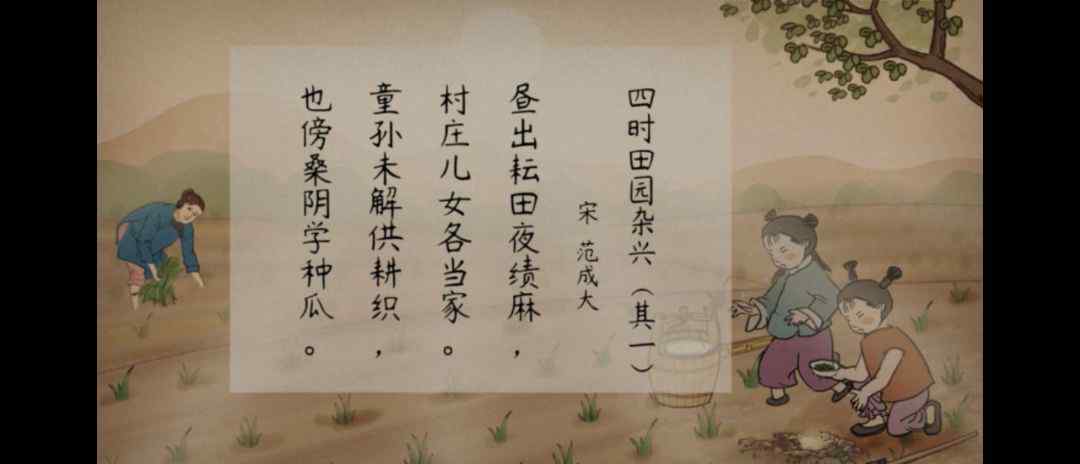 四时田园杂兴（其一）
宋 范成大
昼出耘田夜绩麻，
村庄儿女各当家。
童孙未解供耕织，
也傍桑阴学种瓜。